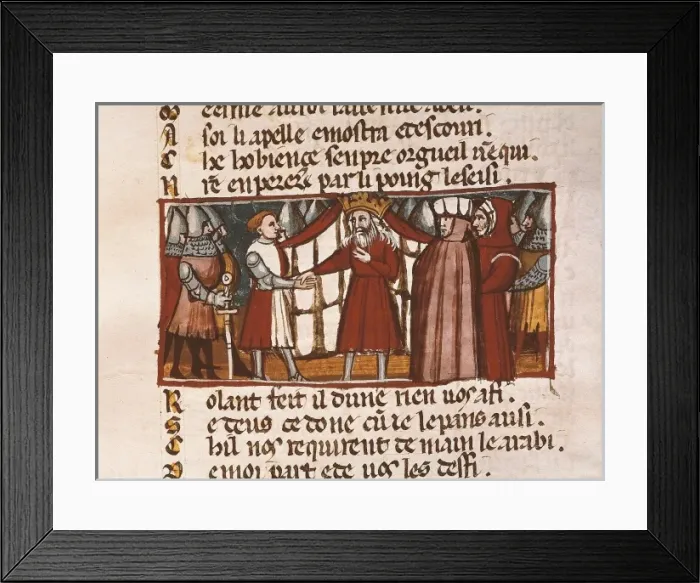 A soi li apelle e mostra et escouri.
C he bobience senpre orgueil nequi.
N re enperere par li poing le seisi.
R olant feit il dune rien uos afi.
E deus ce done cu ie le pans ausi.
C hil nos requirent de main le arabi.
D emoi part ede uos les deffi.